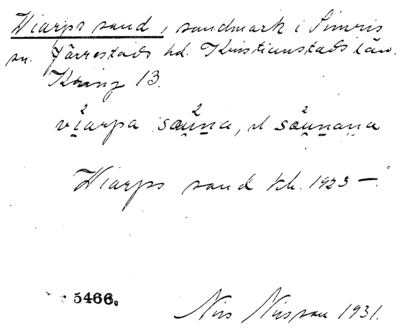 Wiarps sand, sandmark i Simris
sn. Järrestads hd. Kristianstads län.
Kring 13.
viarpa sau̯na, pl sau̯nana
Wiarps sand kh. 1923 —
5466.
Nils Nilsson 1931.